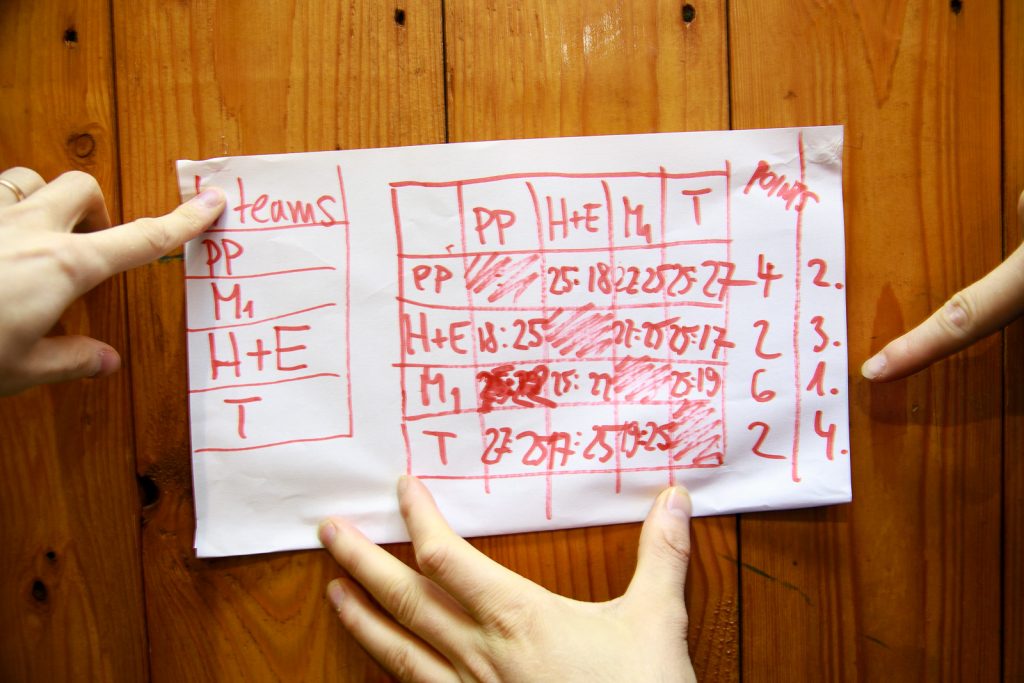 teams
PP
M1
H+E
T
PP H+E M1 T POINTS
PP 25:18 25:27 4 2.
H+E 18:25 25:17 2 3.
M1 25:19 6 1.
T 27:25 17:25 19:25 2 4.